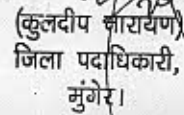 (कुलदीप नारायण)
जिला पदाधिकारी,
मुंगेर।